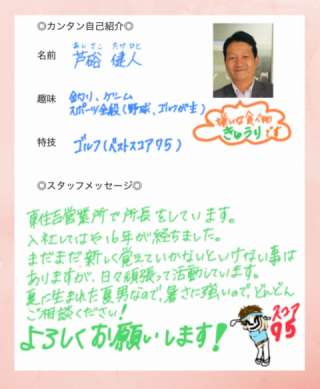 ◎カンタン自己紹介◎
あしざこ たけひと
名前 芦硲 健人
趣味 釣り、ゲーム
スポーツ全般(野球、ゴルフが主)
嫌いな食べ物
きゅうりです
特技 ゴルフ(ベストスコア75)
◎スタッフメッセージ◎
東住吉営業所で所長をしています。
入社してはや16年が経ちました。
まだまだ新しく覚えていかないといけない事は
ありますが、日々頑張って活動しています。
夏に生まれた夏男なので、暑さに強いので、どんどん
ご相談ください!
よろしくお願いします!
スコア
95